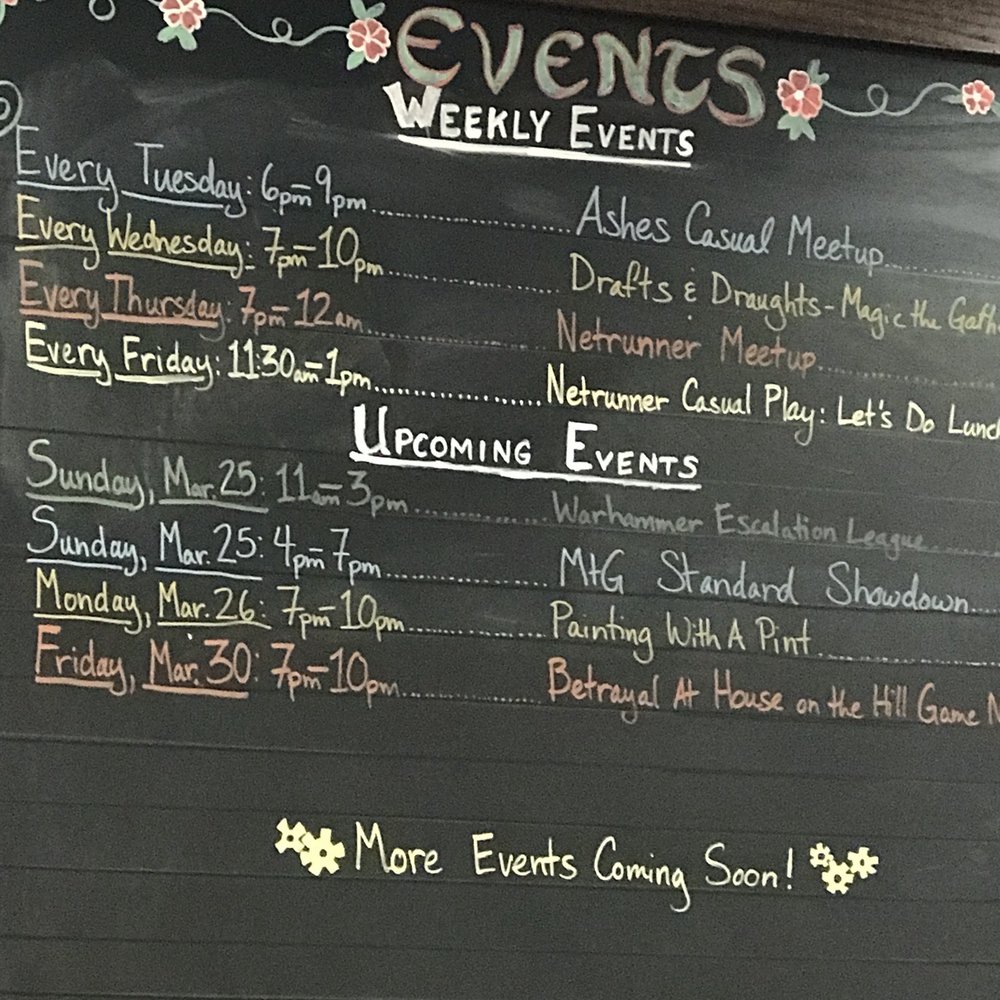 EVENTS
WEEKLY EVENTS
Every Tuesday: 6pm-9pm..................Ashes Casual Meetup..........
Every Wednesday: 7pm-10pm..................Drafts & Draughts-Magic the
Every Thursday: 7pm-12am..................Netrunner Meetup..................
Every Friday: 11:30am-1pm..................Netrunner Casual Play: Let's Do
UPCOMING EVENTS
Sunday, Mar. 25: 11am-3pm..................Warhammer Escalation League........
Sunday, Mar. 25: 4pm-7pm..................MtG Standard Showdown....
Monday, Mar. 26: 7pm-10pm..................Painting With A Pint..................
Friday, Mar. 30: 7pm-10pm..................Betrayal At House on the Hill Game
More Events Coming Soon!